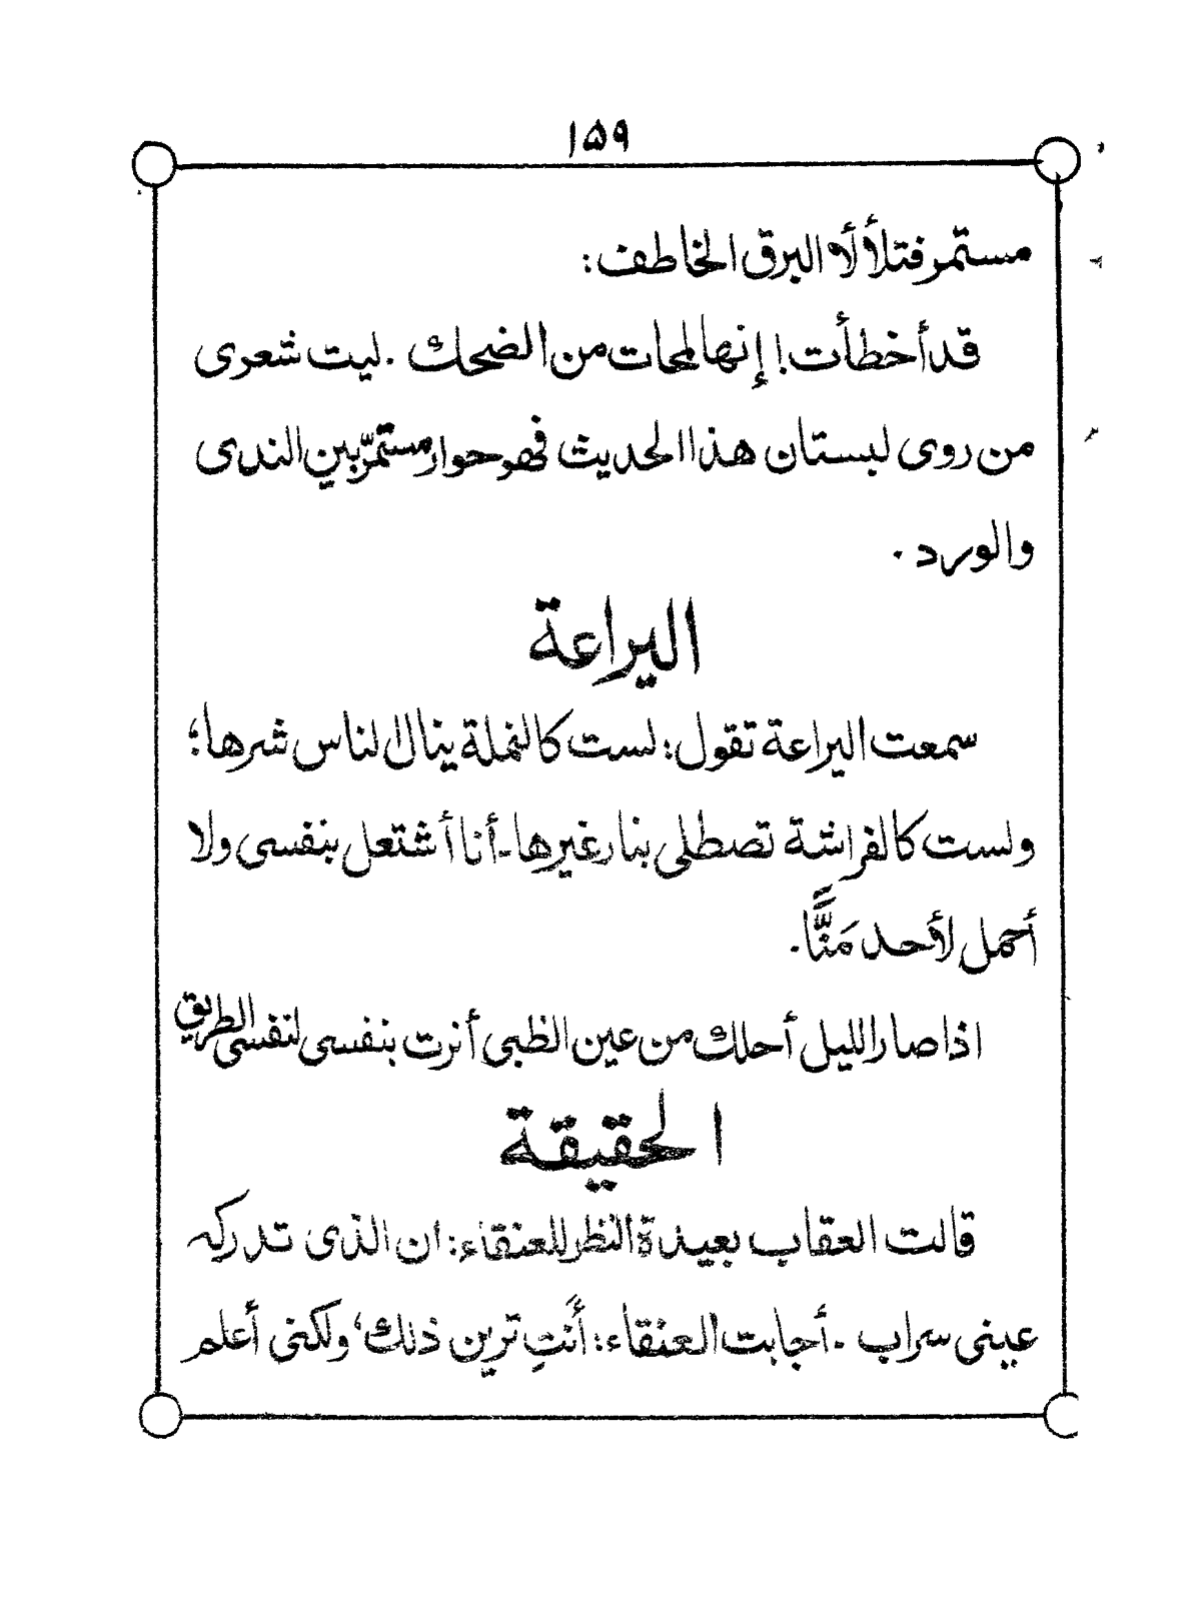 ١٥٩
مستمر فتلألأ البرق الخاطف :
قد أخطأت! إنها لمحات من الضحك . ليت شعرى
من روى لبستان هذا الحديث فهو حوار مستمرّ بين الندى
والورد .
اليراعة
سمعت اليراعة تقول: لست كالنملة ينال الناس شرها؛
ولست كالفراشة تصطلى بنار غيرها - أنا أشتعل بنفسى ولا
أحمل لأحد مَنًّا.
اذا صار الليل أحلك من عين الظبى أنرت بنفسى لنفسى الطريق
الحقيقة
قالت العقاب بعيدة النظر للعنقاء: ان الذى تدركه
عينى سراب - أجابت العنقاء: أَنتِ ترين ذلك، ولكنى أعلم